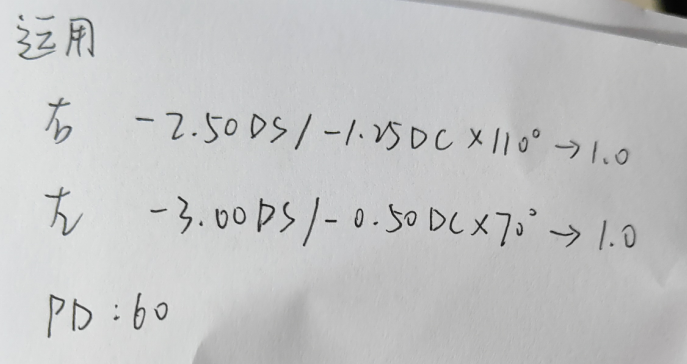 运用
右 -2.50DS/-1.25DC×110°→1.0
左 -3.00DS/-0.50DC×70°→1.0
PD:60